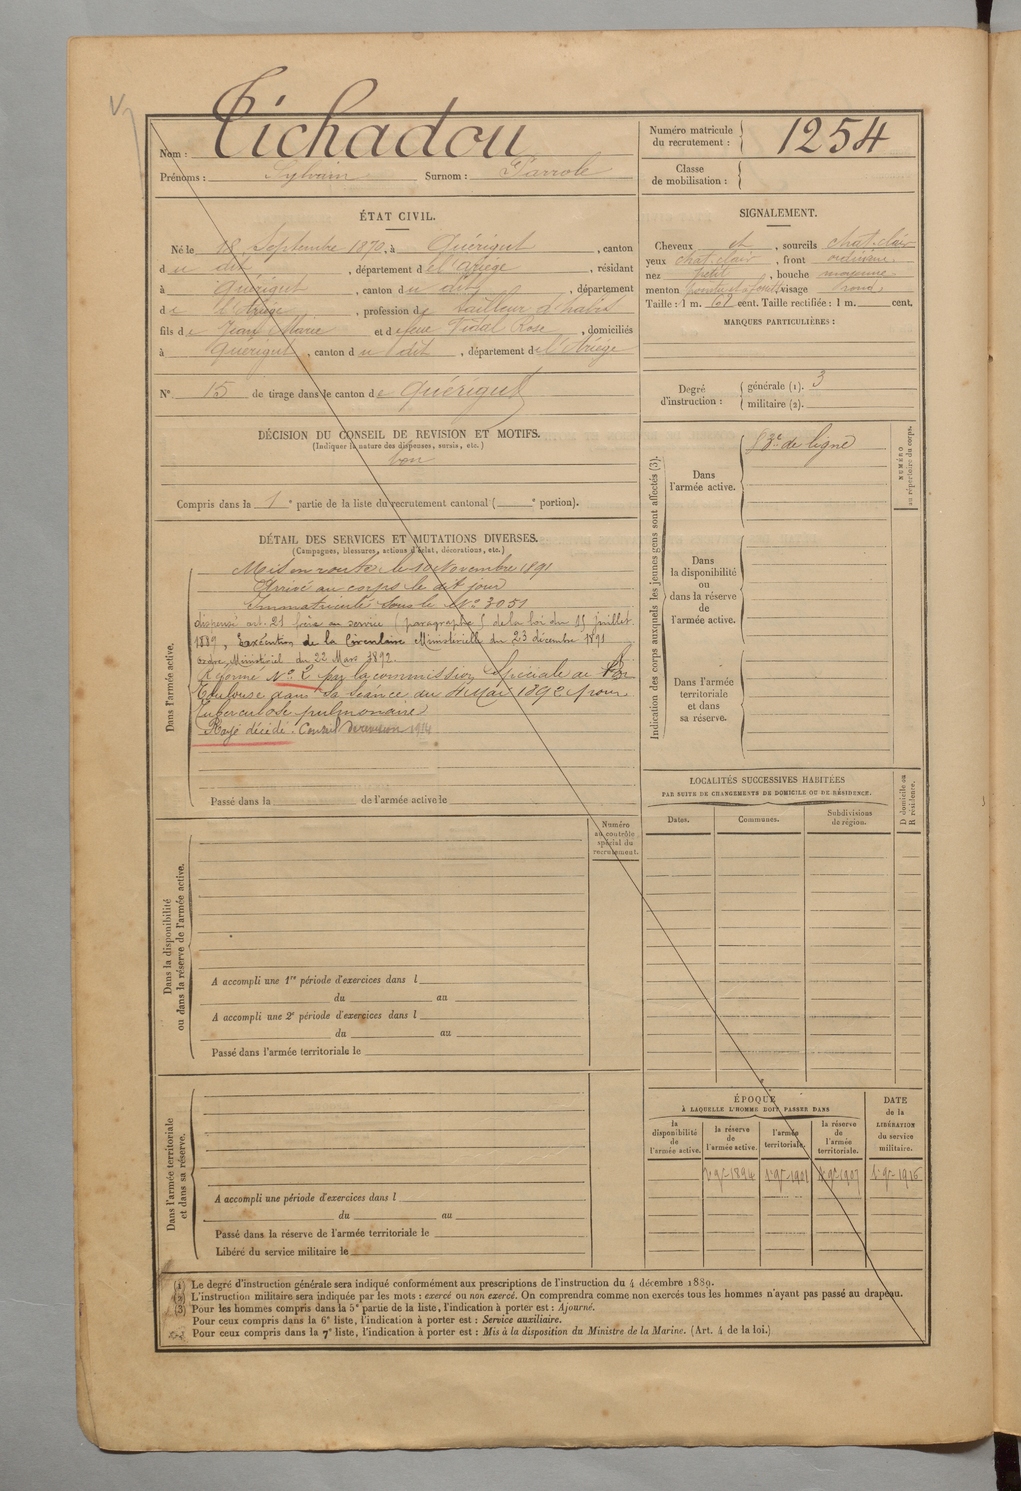 Nom : Tichadou
Prénoms : Sylvain Surnom : Parrole
Numéro matricule du recrutement : 1254
Classe de mobilisation :
ÉTAT CIVIL.
Né le 18 Septembre 1870, à Quérigut, canton
du dit, département de l'Ariège, résidant
à Quérigut, canton du dit, département
de l'Ariège, profession de tailleur d'habits
fils de Jean Marie et de feue Vidal Rose, domiciliés
à Quérigut, canton du dit, département de l'Ariège
N° 15 de tirage dans le canton de Quérigut
SIGNALEMENT.
Cheveux et, sourcils chat. clair
yeux chat. clair, front ordinaire
nez petit, bouche moyenne
menton visage rond
Taille : 1 m. 61 cent. Taille rectifiée : 1 m. cent.
MARQUES PARTICULIÈRES :
Degré d'instruction : générale (1). 3
militaire (2).
DÉCISION DU CONSEIL DE REVISION ET MOTIFS.
(Indiquer la nature des dispenses, sursis, etc.)
bon
Compris dans la 1e partie de la liste du recrutement cantonal ( e portion).
DÉTAIL DES SERVICES ET MUTATIONS DIVERSES.
(Campagnes, blessures, actions d'éclat, décorations, etc.)
Dans l'armée active.
Mis en route le 10 Novembre 1891
Arrivé au corps le dit jour
Immatriculé sous le N° 3051
dispensé art. 21 frère au service (paragraphe 5 de la loi du 15 juillet
1889, Exécution de la Circulaire Ministérielle du 23 décembre 1891
ordre Ministériel du 22 Mars 1892.
Réformé N° 2 par la commission Spéciale de
Toulouse dans sa séance du 4 Mai 1892 pour
tuberculose pulmonaire
Rayé décédé. Conseil de revision 1914
Passé dans la de l'armée active le
Indication des corps auxquels les jeunes gens sont affectés (3).
NUMÉRO au répertoire du corps.
Dans l'armée active. 83e de ligne
Dans la disponibilité ou dans la réserve de l'armée active.
Dans l'armée territoriale et dans sa réserve.
LOCALITÉS SUCCESSIVES HABITÉES
PAR SUITE DE CHANGEMENTS DE DOMICILE OU DE RÉSIDENCE.
Dates. Communes. Subdivisions de région. D domicile ou R résidence.
Numéro au contrôle spécial du recrutement.
Dans la disponibilité ou dans la réserve de l'armée active.
A accompli une 1re période d'exercices dans l
du au
A accompli une 2e période d'exercices dans l
du au
Passé dans l'armée territoriale le
Dans l'armée territoriale et dans sa réserve.
A accompli une période d'exercices dans l
du au
Passé dans la réserve de l'armée territoriale le
Libéré du service militaire le
ÉPOQUE
À LAQUELLE L'HOMME DOIT PASSER DANS
la disponibilité de l'armée active. la réserve de l'armée active. l'armée territoriale. la réserve de l'armée territoriale.
DATE de la LIBÉRATION du service militaire.
1894 1901 1907 1916
(1) Le degré d'instruction générale sera indiqué conformément aux prescriptions de l'instruction du 4 décembre 1889.
(2) L'instruction militaire sera indiquée par les mots : exercé ou non exercé. On comprendra comme non exercés tous les hommes n'ayant pas passé au drapeau.
(3) Pour les hommes compris dans la 5e partie de la liste, l'indication à porter est : Ajourné.
Pour ceux compris dans la 6e liste, l'indication à porter est : Service auxiliaire.
Pour ceux compris dans la 7e liste, l'indication à porter est : Mis à la disposition du Ministre de la Marine. (Art. 4 de la loi.)